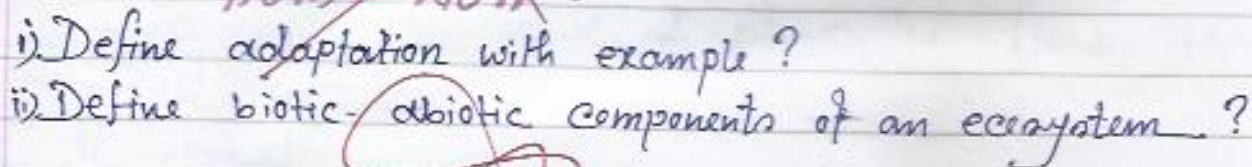 i). Define adaptation with example ?
ii). Define biotic - abiotic components of an ecosystem . ?